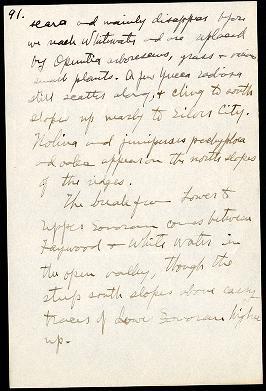 91.
scarce and mainly disappear before
we reach Whitewater and are replaced
by Opuntia arborescens, grass & various
small plants. A few Yucca radiosa
still scatter along, & cling to south
slopes up nearly to Silver City.
Nolina and juniperus pachyphloea
and oaks appear on the north slopes
of the ridges.
The break from Lower to
Upper Sonoran comes between
Faywood & White Water in
the open valley, though the
steep south slopes above carry
traces of Lower Sonoran higher
up.